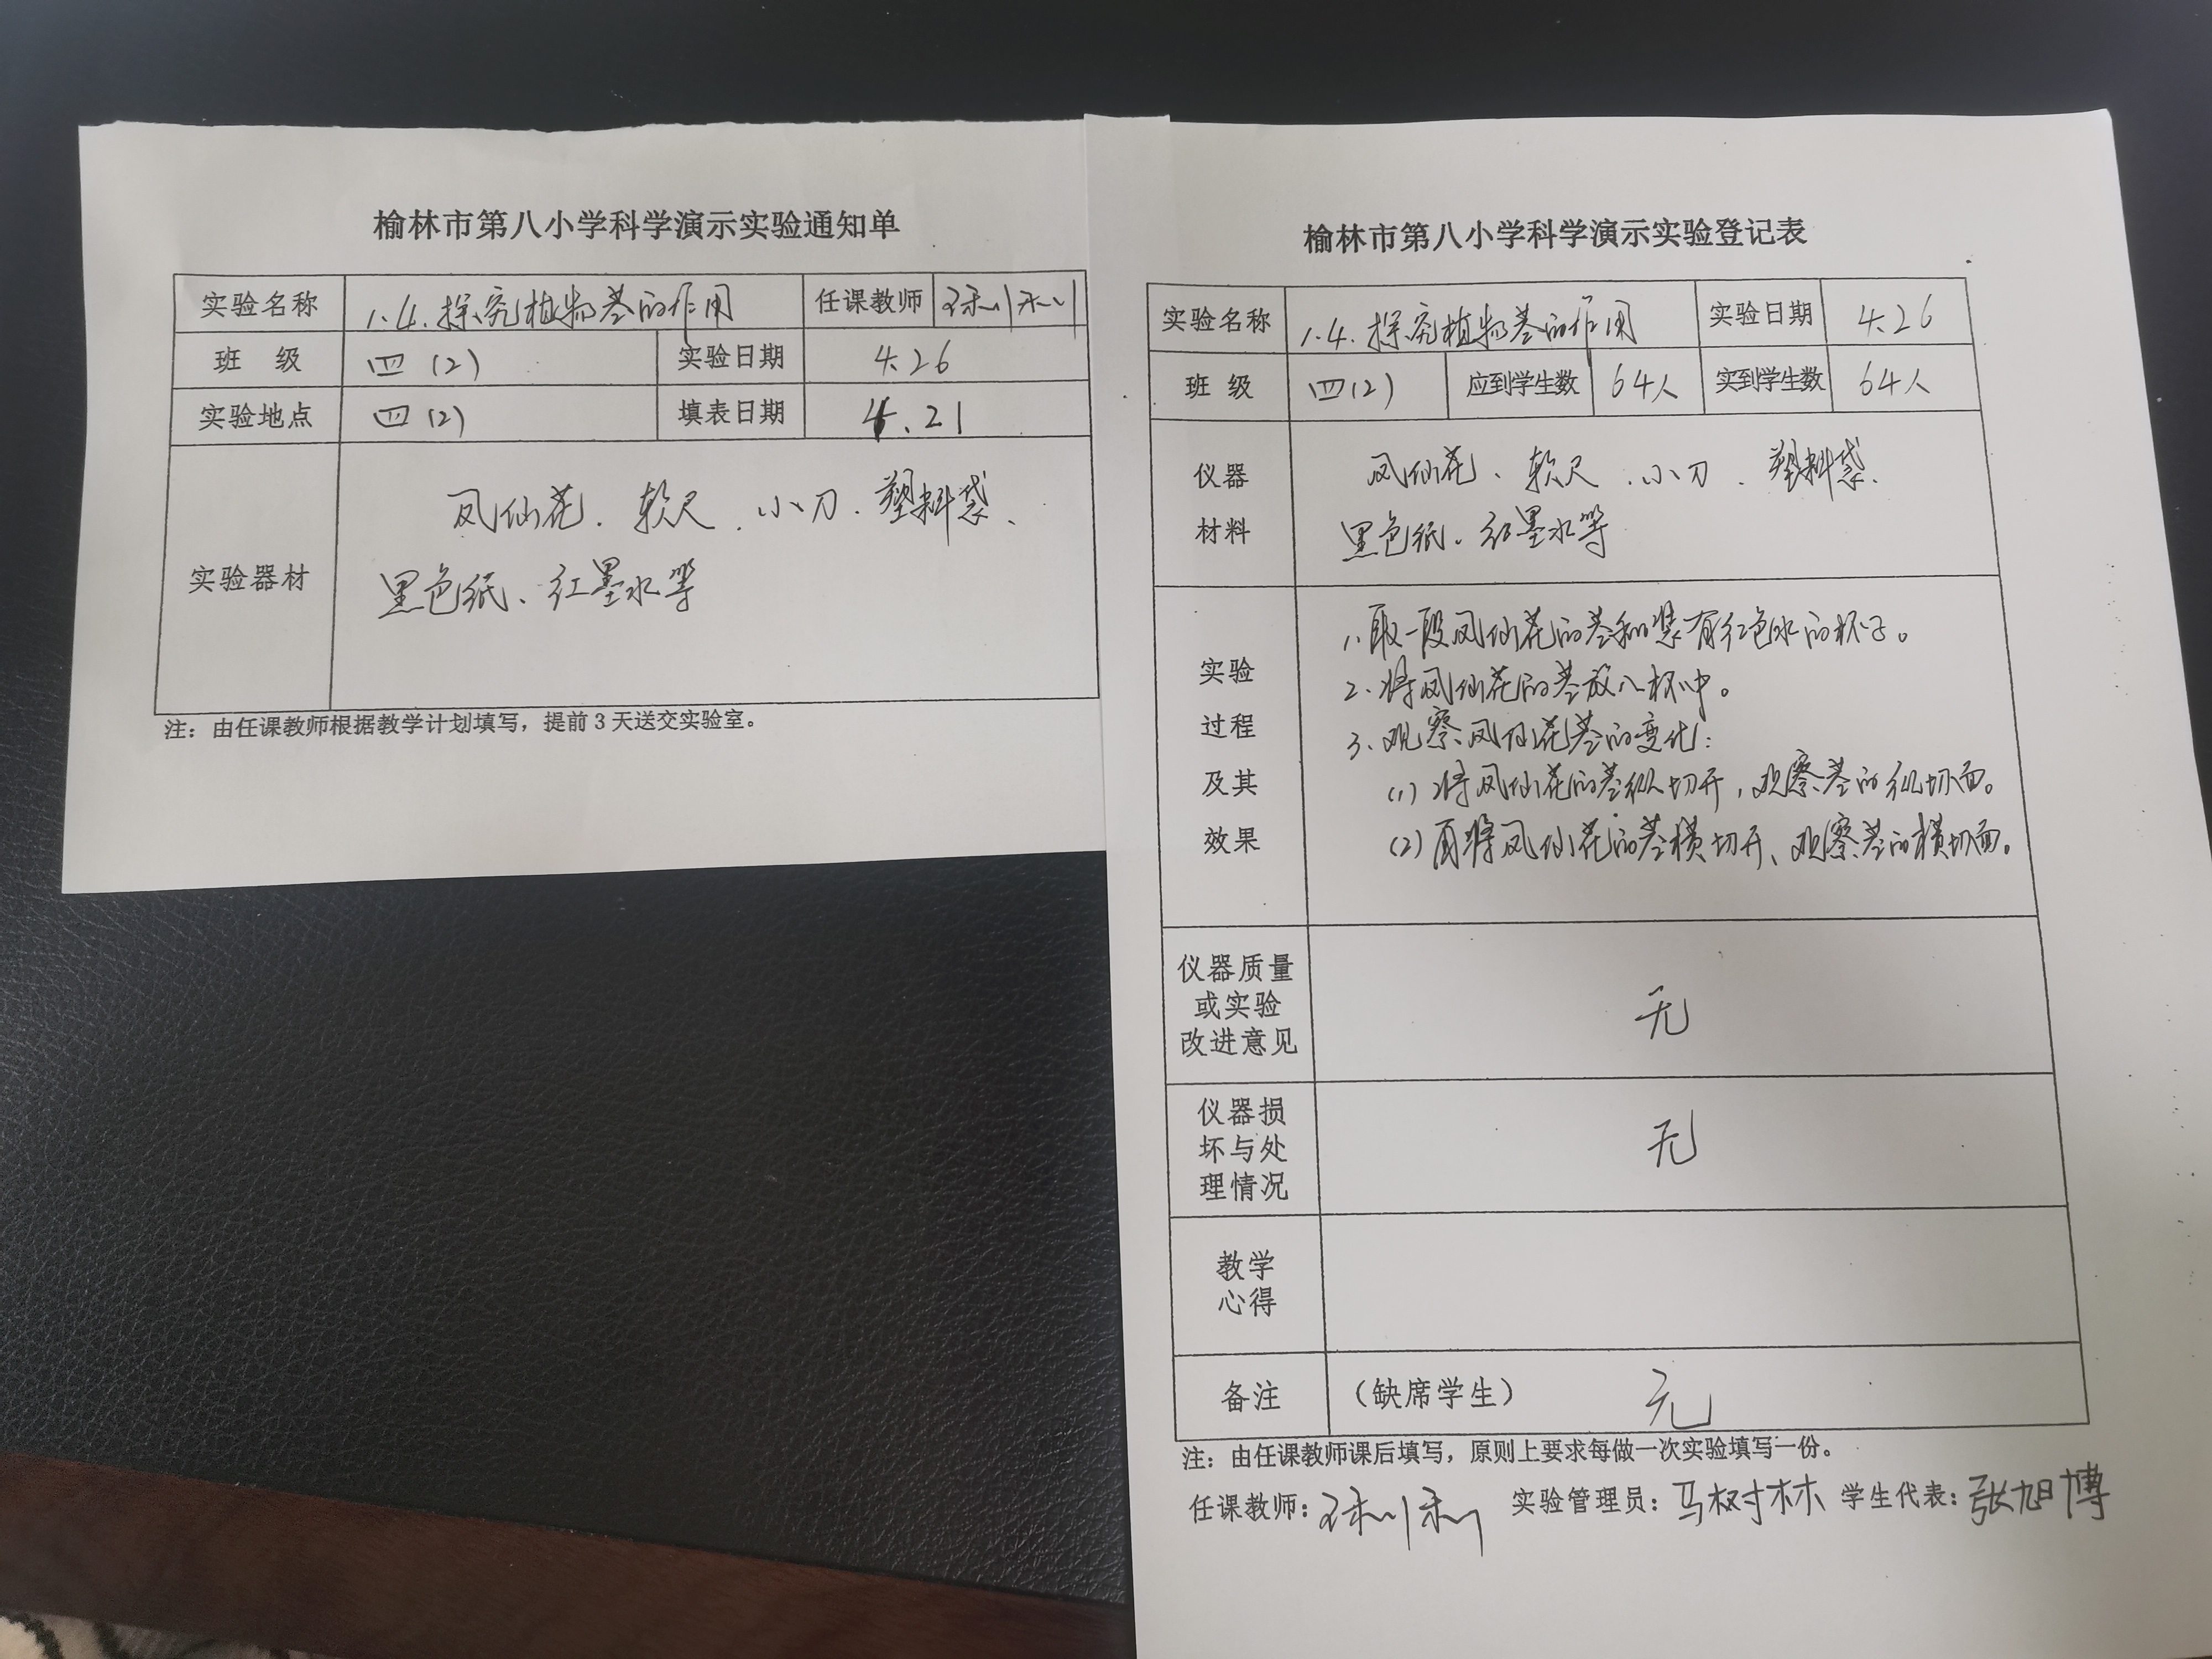 榆林市第八小学科学演示实验通知单
实验名称 1.4.探究植物茎的作用 任课教师
班 级 四(2) 实验日期 4.26
实验地点 四(2) 填表日期 4.21
实验器材 凤仙花、软尺、小刀、塑料袋、
黑色纸、红墨水等
注：由任课教师根据教学计划填写，提前3天送交实验室。
榆林市第八小学科学演示实验登记表
实验名称 1.4.探究植物茎的作用 实验日期 4.26
班 级 四(2) 应到学生数 64人 实到学生数 64人
仪器
材料
凤仙花、软尺、小刀、塑料袋、
黑色纸、红墨水等
实验
过程
及其
效果
1.取一段凤仙花的茎和装有红色水的杯子。
2.将凤仙花的茎放入杯中。
3.观察凤仙花茎的变化：
(1)将凤仙花的茎纵切开，观察茎的纵切面。
(2)再将凤仙花的茎横切开、观察茎的横切面。
仪器质量
或实验
改进意见
无
仪器损
坏与处
理情况
无
教学
心得
备注 （缺席学生） 无
注：由任课教师课后填写，原则上要求每做一次实验填写一份。
任课教师： 实验管理员：马树林 学生代表：张旭博